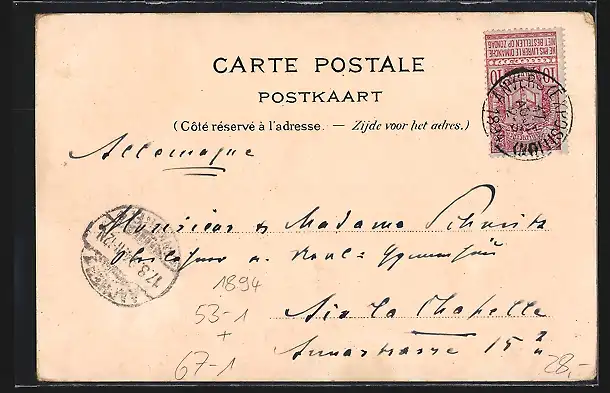 NE PAS LIVRER LE DIMANCHE
NIET BESTELLEN OP ZONDAG
10 10
CARTE POSTALE
POSTKAART
(Côté réservé à l'adresse. — Zijde voor het adres.)
ANVERS (EXPOSITION)
Allemagne
Monsieur & Madame Schmitz
Oberlehrer a.
Aix la Chapelle
Annastrasse 15
1894
53-1
+
67-1
28,-